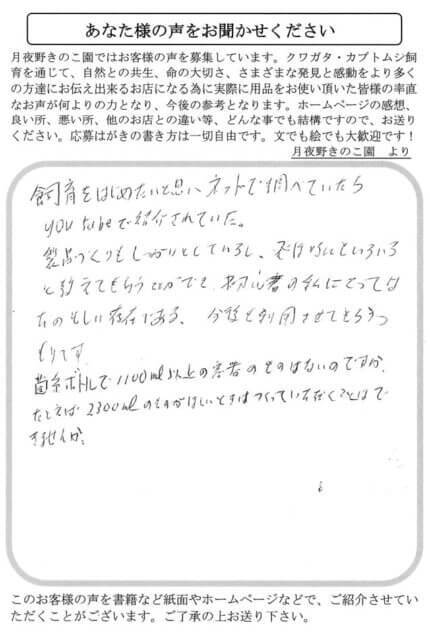 あなた様の声をお聞かせください
月夜野きのこ園ではお客様の声を募集しています。クワガタ・カブトムシ飼
育を通じて、自然との共生、命の大切さ、さまざまな発見と感動をより多く
の方達にお伝え出来るお店になる為に実際に用品をお使い頂いた皆様の率直
なお声が何よりの力となり、今後の参考となります。ホームページの感想、
良い所、悪い所、他のお店との違い等、どんな事でも結構ですので、お送り
ください。応募はがきの書き方は一切自由です。文でも絵でも大歓迎です！
月夜野きのこ園 より
飼育をはじめたいと思いネットで調べていたら
you tubeで紹介されていた。
製品づくりもしっかりとしているし、いろいろ
と教えてもらうことができ、初心者の私にとっては
たのもしい存在である。今後も利用させてもらう
つもりです
菌糸ボトルで1100ml以上の容器のものはないのですか。
たとえば2300mlのものがほしいときはつくっていただくことはで
きませんか。
このお客様の声を書籍など紙面やホームページなどで、ご紹介させてい
ただくことがございます。ご了承の上お送り下さい。